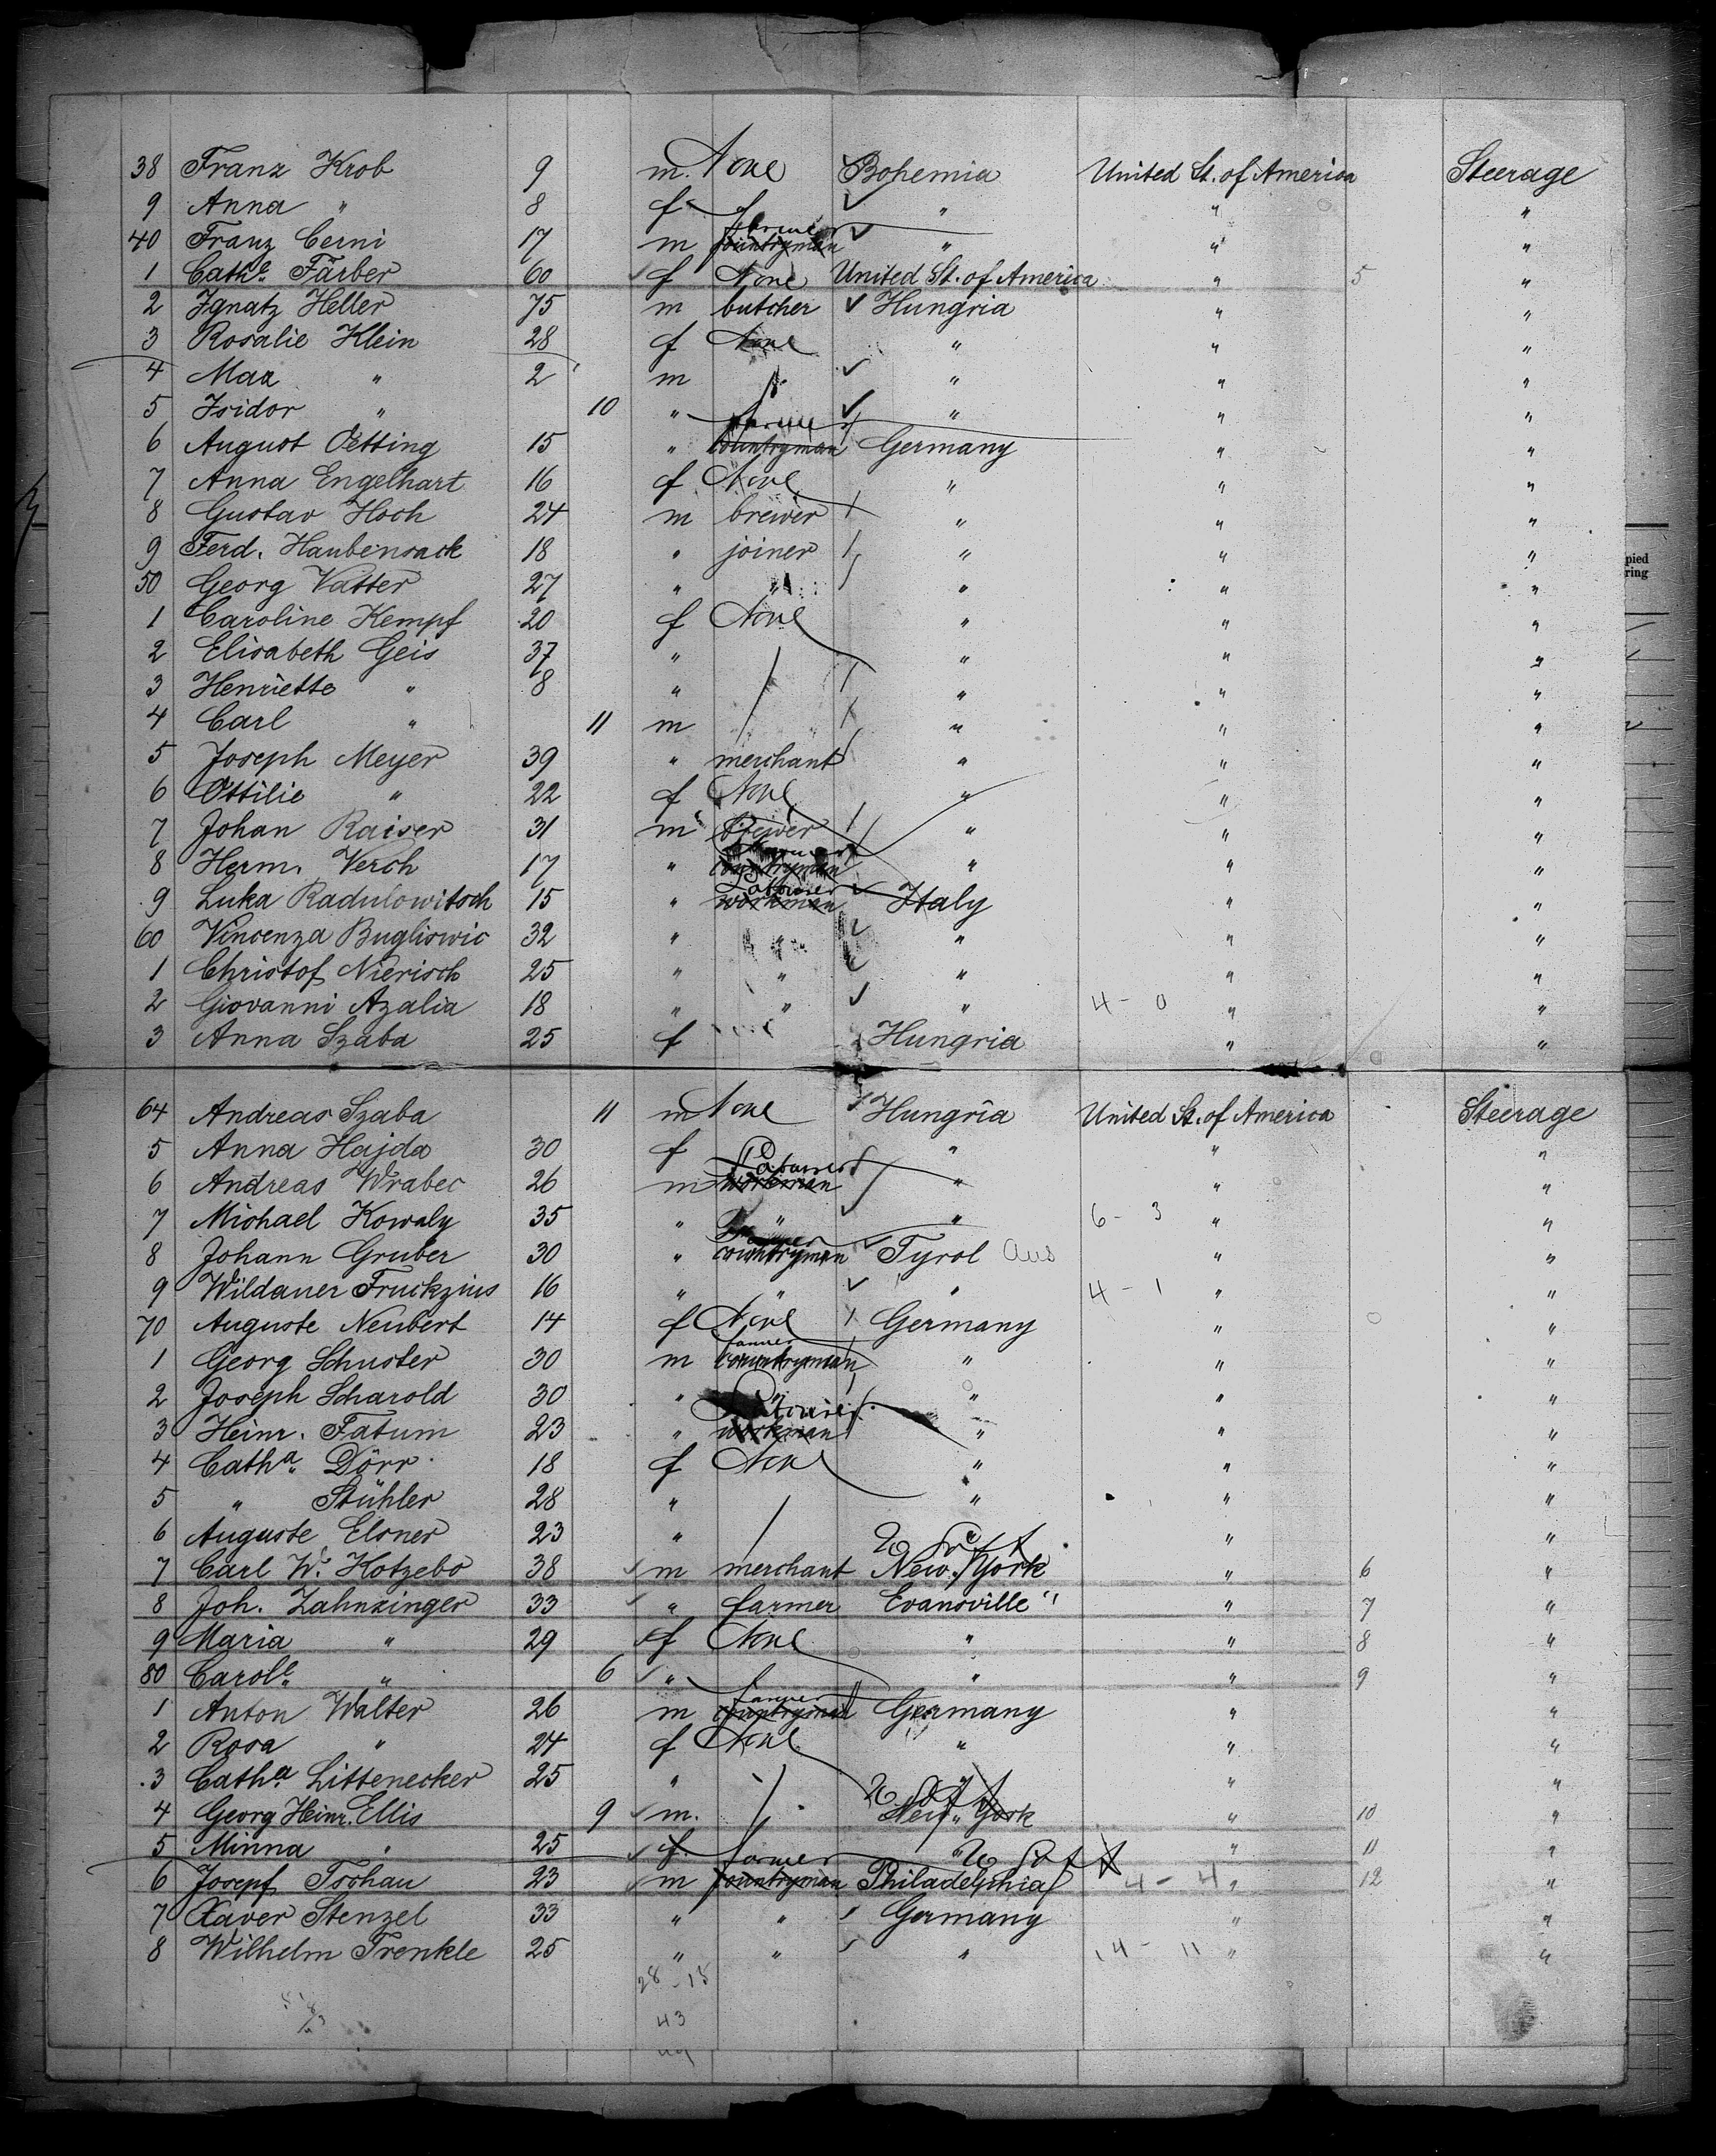 38 Franz Krob 9 m. None Bohemia United St. of America Steerage
9 Anna " 8 f " " "
40 Franz Cerni 17 m farmer countryman " " "
1 Cath.e Färber 60 f None United St. of America " 5 "
2 Ignatz Heller 75 m butcher Hungria " "
3 Rosalie Klein 28 f None " " "
4 Max " 2 m " " "
5 Isidor " 10 " " " "
6 August Oetting 15 " farmer countryman Germany " "
7 Anna Engelhart 16 f None " " "
8 Gustav Hoch 24 m brewer " " "
9 Ferd. Haubensack 18 " joiner " " "
50 Georg Vatter 27 " " " " "
1 Caroline Kempf 20 f None " " "
2 Elisabeth Geis 37 " " " "
3 Henriette " 8 " " " "
4 Carl " 11 m " " "
5 Joseph Meyer 39 " merchant " " "
6 Ottilie " 22 f None " " "
7 Johan Kaiser 31 m brewer " " "
8 Herm. Verch 17 " farmer countryman " " "
9 Luka Radulowitsch 15 " Labourer workman Italy " "
60 Vincenza Bugliswic 32 " " " " "
1 Christof Nierisch 25 " " " " "
2 Giovanni Azalia 18 " " " 4 - 0 " "
3 Anna Szaba 25 f Hungria " "
64 Andreas Szaba 11 m None Hungria United St. of America Steerage
5 Anna Hajda 30 f " " "
6 Andreas Wrabec 26 m Labourer workman " " "
7 Michael Kowaly 35 " " " 6 - 3 " "
8 Johann Gruber 30 " farmer countryman Tyrol Aus " "
9 Wildauer Fruckzius 16 " " " 4 - 1 " "
70 Auguste Neubert 14 f None Germany " "
1 Georg Schuster 30 m farmer countryman " " "
2 Joseph Scharold 30 " " " " "
3 Heinr. Fatum 23 " Labourer workman " " "
4 Cath.a Dörr 18 f None " " "
5 " Stühler 28 " " " "
6 Auguste Elsner 23 " " "
7 Carl W. Kotzebo 38 m merchant U S of A New York " 6 "
8 Joh. Zahnzinger 33 " farmer Evansville " " 7 "
9 Maria " 29 f None " " 8 "
80 Carol.e " 6 " " " 9 "
1 Anton Walter 26 m farmer countryman Germany " "
2 Rosa " 24 f None " " "
3 Cath.a Littenecker 25 " " " "
4 Georg Heinr. Ellis 9 m. U S of A New York " 10 "
5 Minna " 25 f " " 11 "
6 Josepf Tschau 23 m farmer countryman U S of A Philadelphia 4 - 4 " 12 "
7 Xaver Stenzel 33 " " Germany " "
8 Wilhelm Trenkle 25 " " " 14 - 11 " "
28 - 15
43
pied
ring